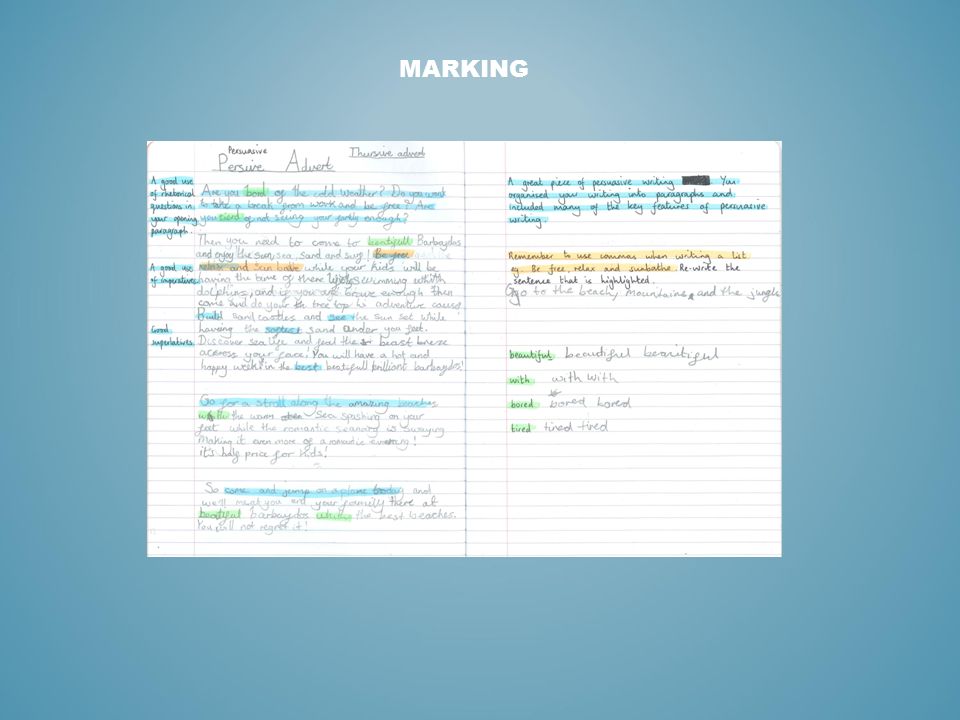 MARKING
Persuasive
Persive Advert
Thursive advert
A good use
of rhetorical
questions in
your opening
paragraph.
Are you bord of the cold weather? Do you want
to take a break from work and be free? Are
you tierd of not seeing your family enough?
Then you need to come to beatifull Barbaydos
and enjoy the sun, sea, sand and surf! Be free
A good use
of imperatives
relax and sun bathe while your kids will be
having the time of there lives swimming whith
dolphins, and if you are brave enough then
come and do your tree top adventure
Build sand castles and see the sun set while
Good
superlatives.
having the softest sand under you feet.
Discover sea life and feel the breeze
across your face! You will have a hot and
happy week in the best beatifull brilliont barbaydos!
Go for a stroll along the amazing beaches
with the warm sea on your
feet while the romantic is swaying
making it even more of a romantic evening!
it's half price for kids!
So come and jump on a plane today and
we'll meat you and your family there at
beatiful barbaydos the best beaches.
You will not regret it!
A great piece of persuasive writing You
organised you writing into paragraphs and
included many of the key features of persuasive
writing.
Remember to use commas when writing a list
eg. Be free, relax and sunbathe. Re-write the
sentence that is highlighted.
Go to the beach, mountains, and the jungle
beautiful beautiful beautiful
with with with
bored bored bored
tired tired tired